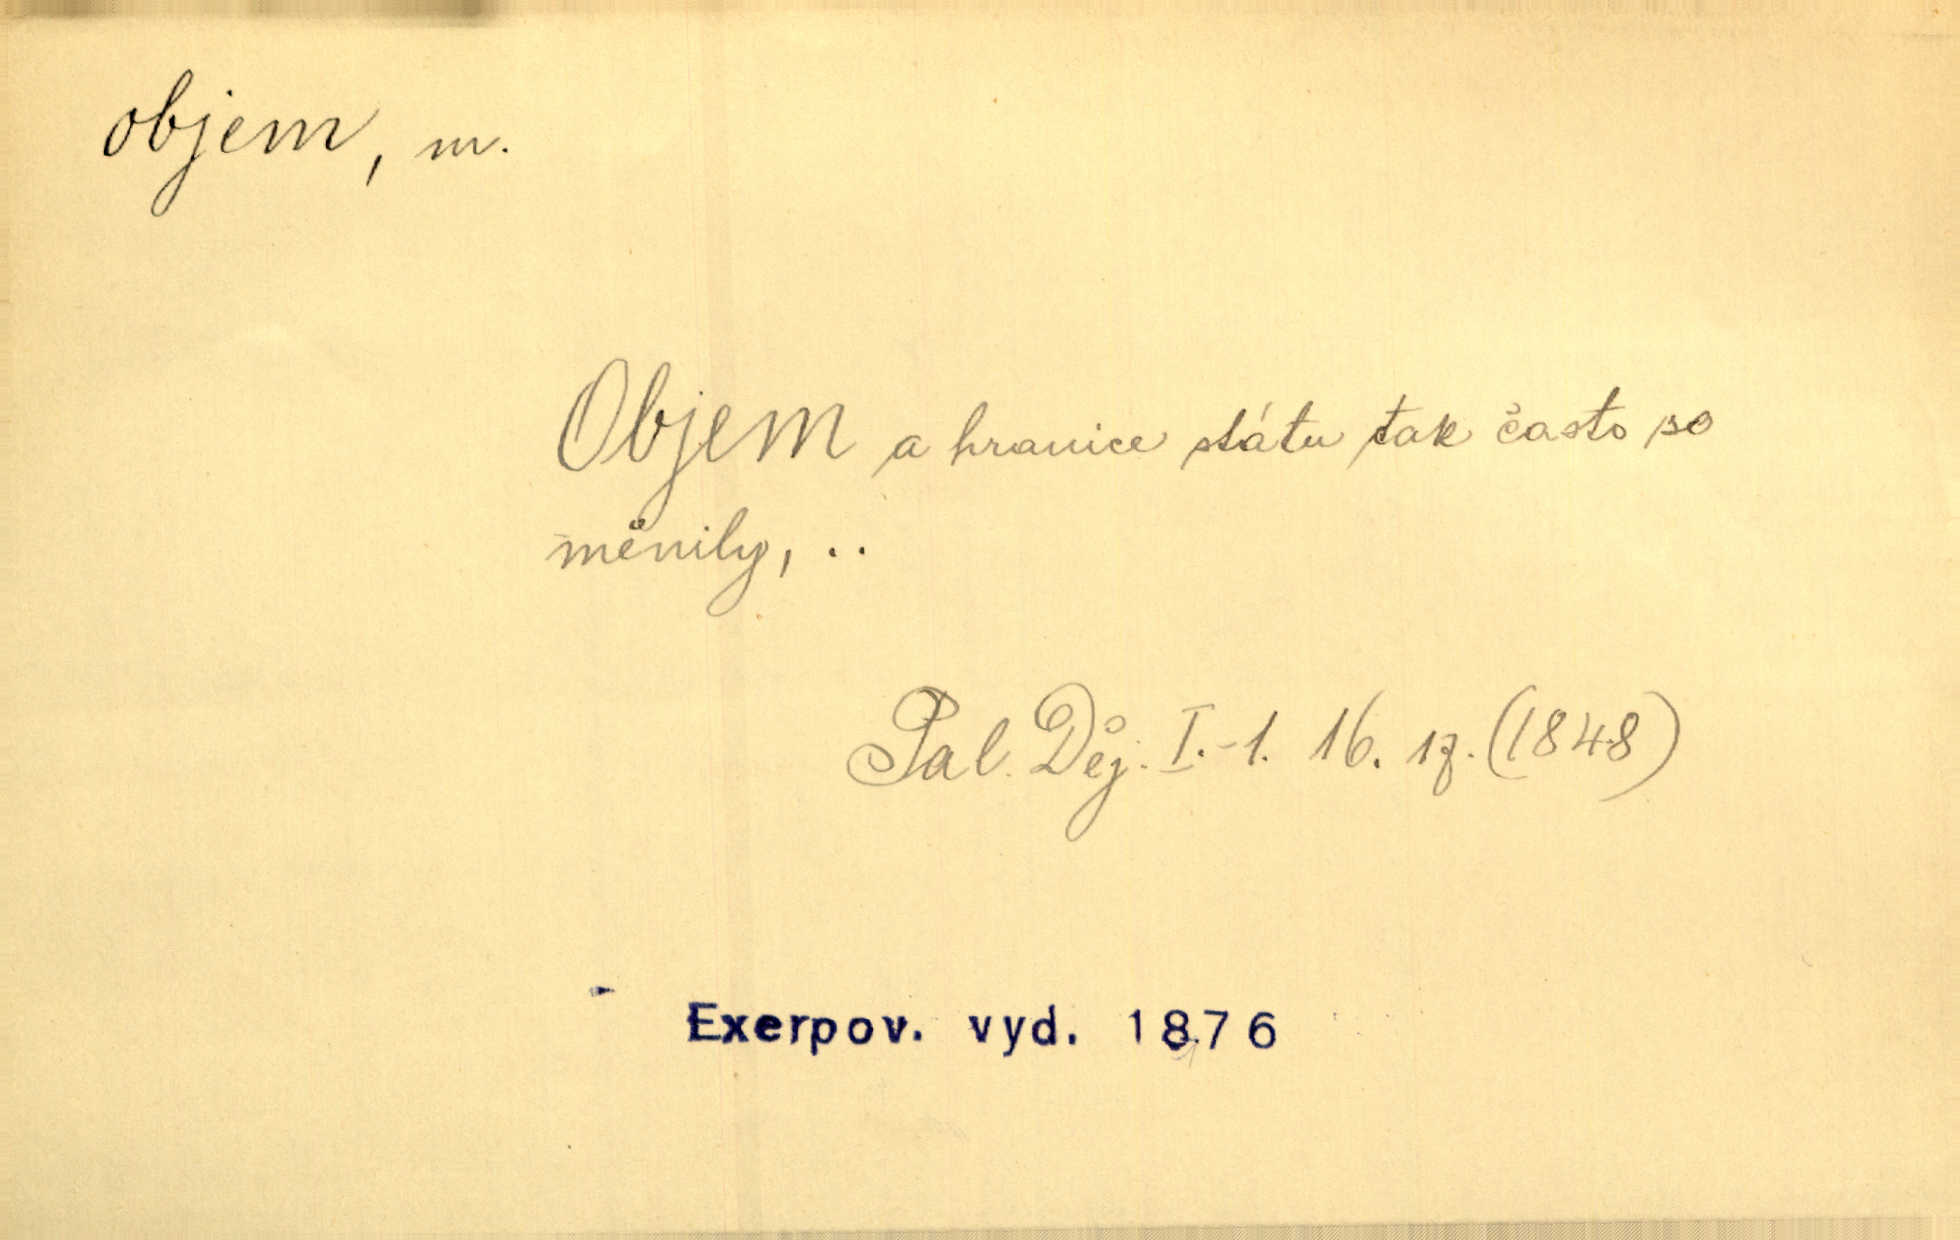 objem, m.
Objem a hranice státu tak často se
měnily, ..
Pal. Děj. I.-1. 16. 17. (1848)
Exerpov. vyd. 1876